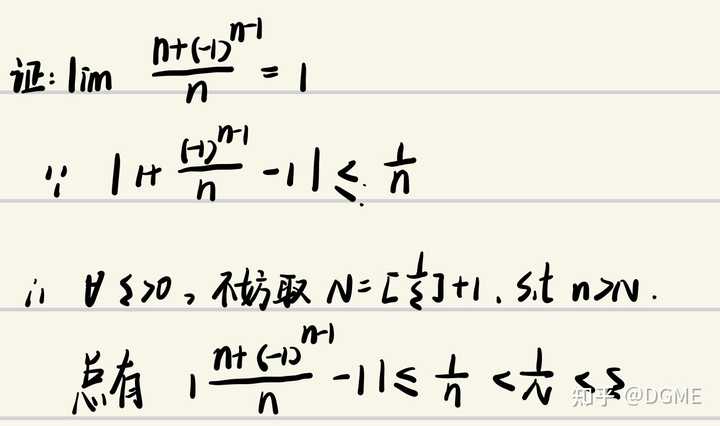 证: lim (n+(-1)^{n-1})/n = 1
∵ |1+ (-1)^{n-1}/n -1| ≤ 1/n
∴ ∀ ε>0, 不妨取 N=[1/ε]+1, s.t n>N.
总有 |(n+(-1)^{n-1})/n -1| ≤ 1/n < 1/N < ε
知乎 @DGME